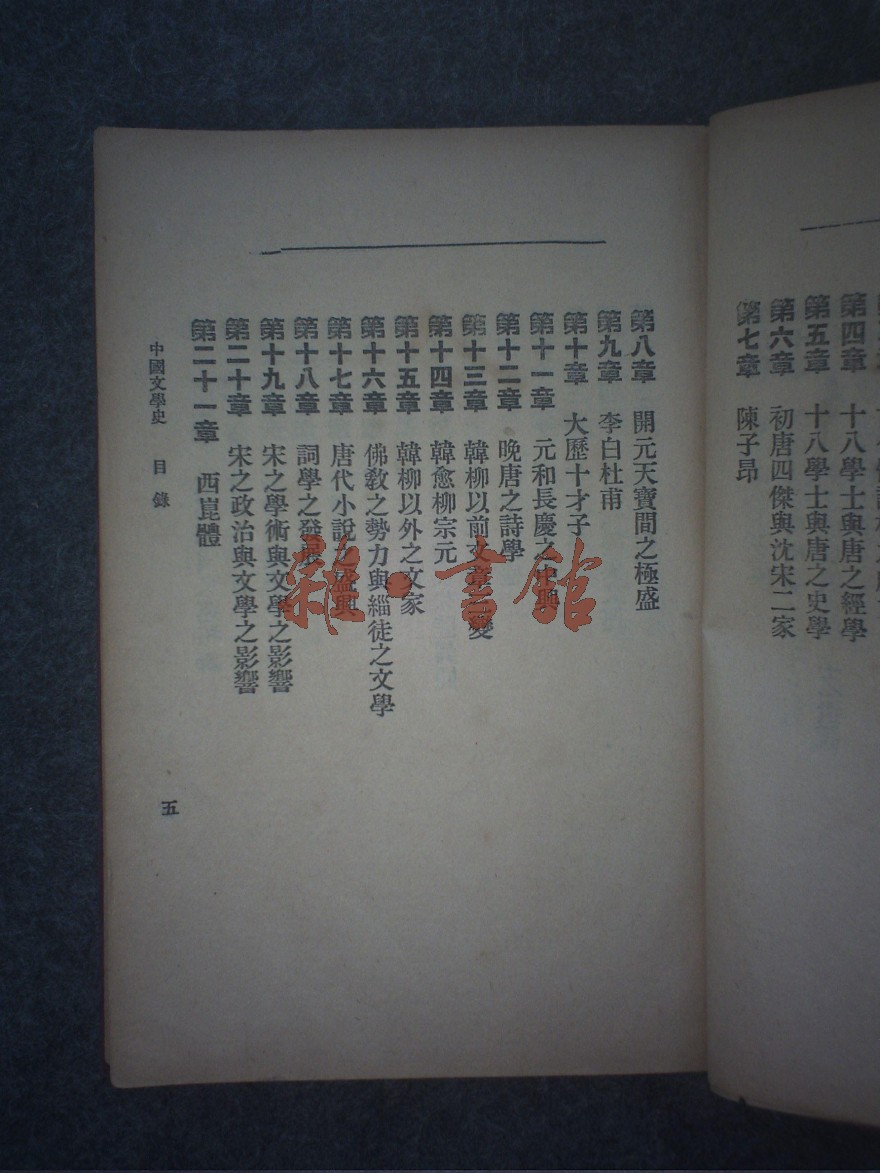 第四章 十八學士與唐之經學
第五章 十八學士與唐之史學
第六章 初唐四傑與沈宋二家
第七章 陳子昂
第八章 開元天寶間之極盛
第九章 李白杜甫
第十章 大歷十才子
第十一章 元和長慶之興
第十二章 晚唐之詩學
第十三章 韓柳以前文章之變
第十四章 韓愈柳宗元
第十五章 韓柳以外之文家
第十六章 佛敎之勢力與緇徒之文學
第十七章 唐代小說之盛興
第十八章 詞學之發展
第十九章 宋之學術與文學之影響
第二十章 宋之政治與文學之影響
第二十一章 西崑體
中國文學史 目錄
五
雜·書館